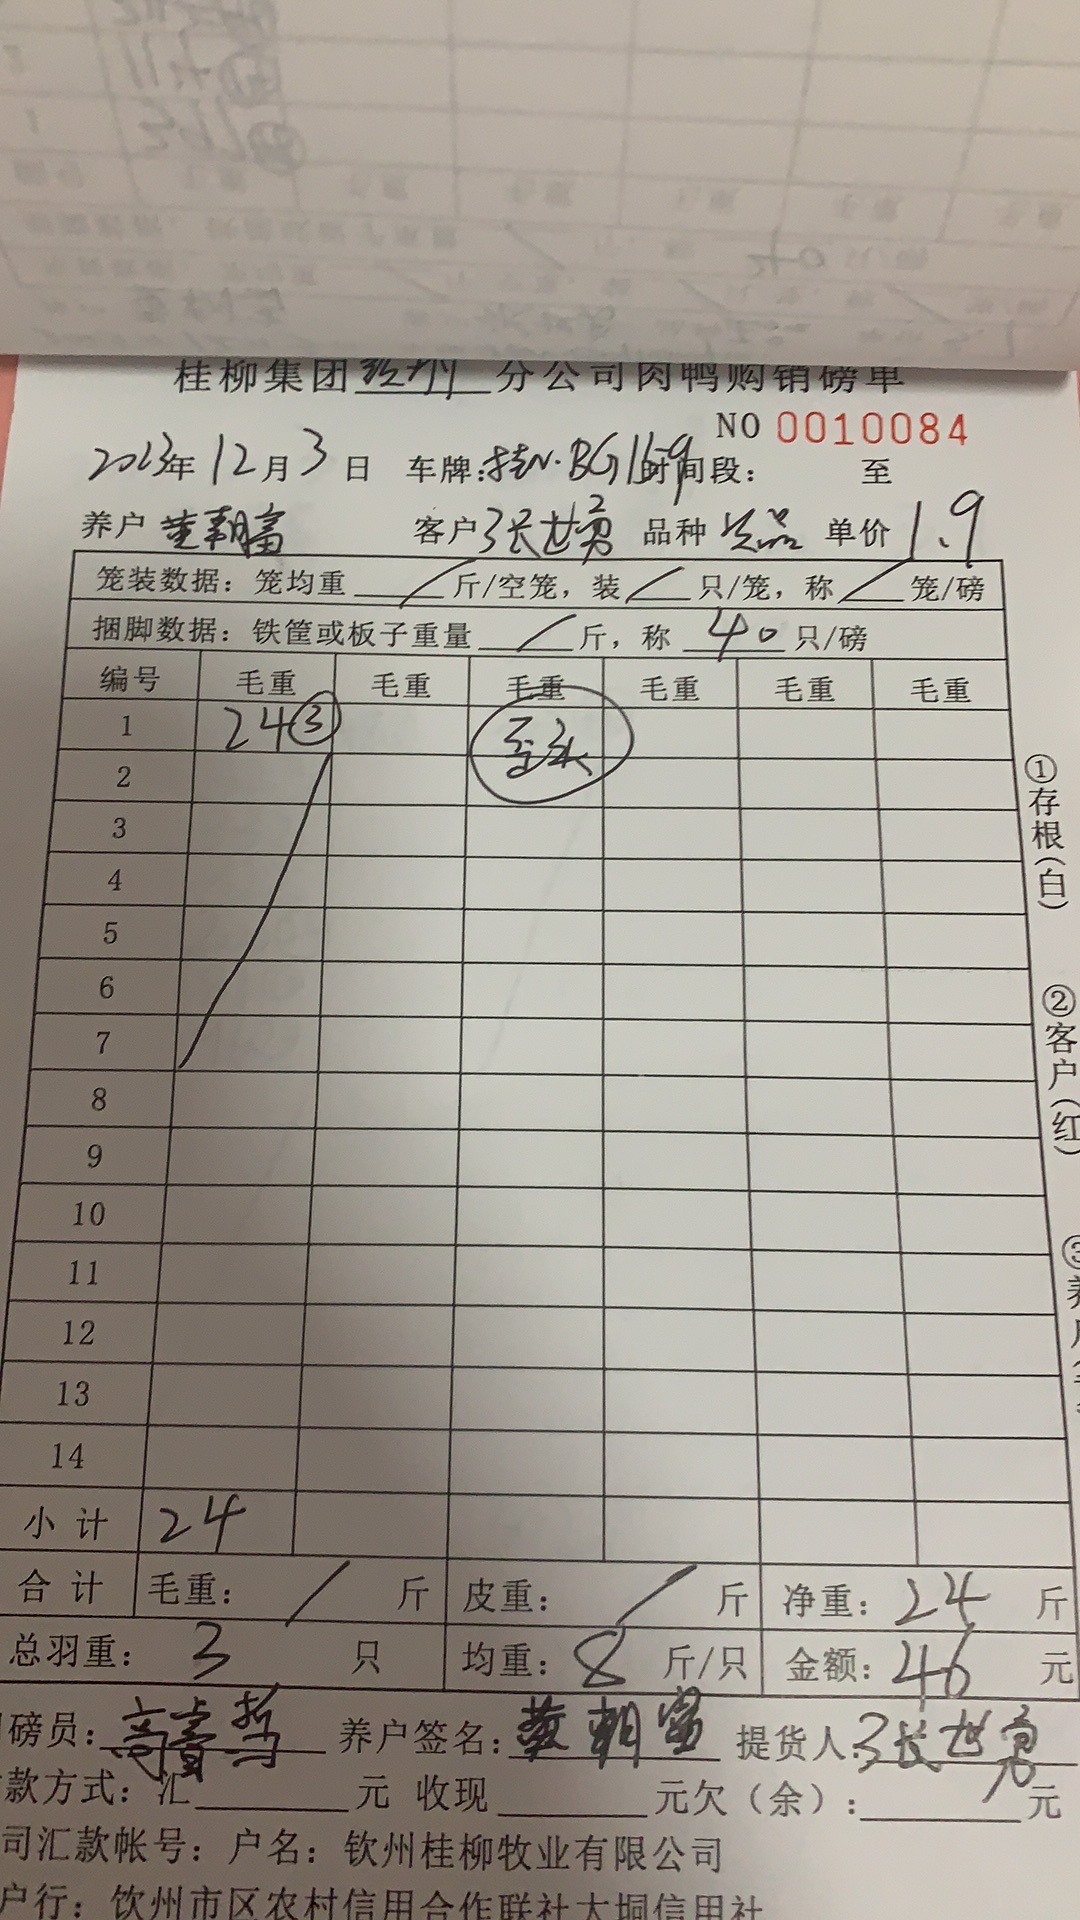 桂柳集团钦州分公司肉鸭购销磅单
NO 0010084
2023年12月3日 车牌:桂N·BG1169 时间段: 至
养户 黄朝富 客户 张世勇 品种 次品 单价 1.9
笼装数据:笼均重 / 斤/空笼,装 / 只/笼,称 / 笼/磅
捆脚数据:铁筐或板子重量 / 斤,称 40 只/磅
编号 毛重 毛重 毛重 毛重 毛重 毛重
1 24③ 歪头
2
3
4
5
6
7
8
9
10
11
12
13
14
小计 24
合计 毛重: / 斤 皮重: / 斤 净重: 24 斤
总羽重: 3 只 均重: 8 斤/只 金额: 46 元
磅员: 养户签名: 黄朝富 提货人: 张世勇
款方式:汇 元 收现 元欠(余): 元
司汇款帐号:户名:钦州桂柳牧业有限公司
户行:钦州市区农村信用合作联社大垌信用社
①存根(白)
②客户(红)
③养户